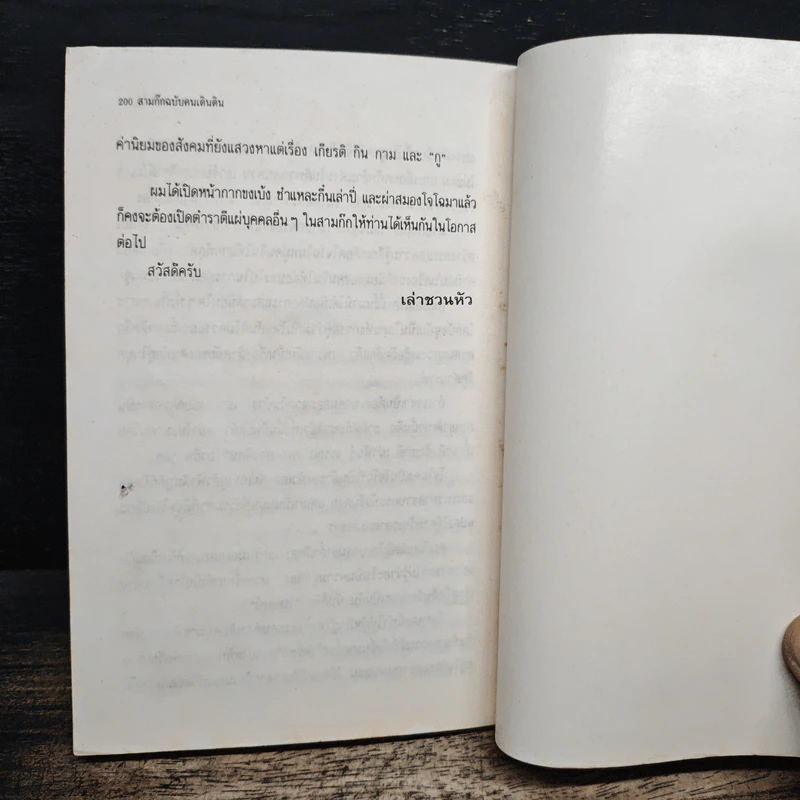 200 สามก๊กฉบับคนเดินดิน
ค่านิยมของสังคมที่ยังแสวงหาแต่เรื่อง เกียรติ กิน กาม และ "กู"
ผมได้เปิดหน้ากากขงเบ้ง ชำแหละกึ๋นเล่าปี่ และผ่าสมองโจโฉมาแล้ว
ก็คงจะต้องเปิดตำราตีแผ่บุคคลอื่นๆ ในสามก๊กให้ท่านได้เห็นกันในโอกาส
ต่อไป
สวัสดีครับ
เล่าชวนหัว